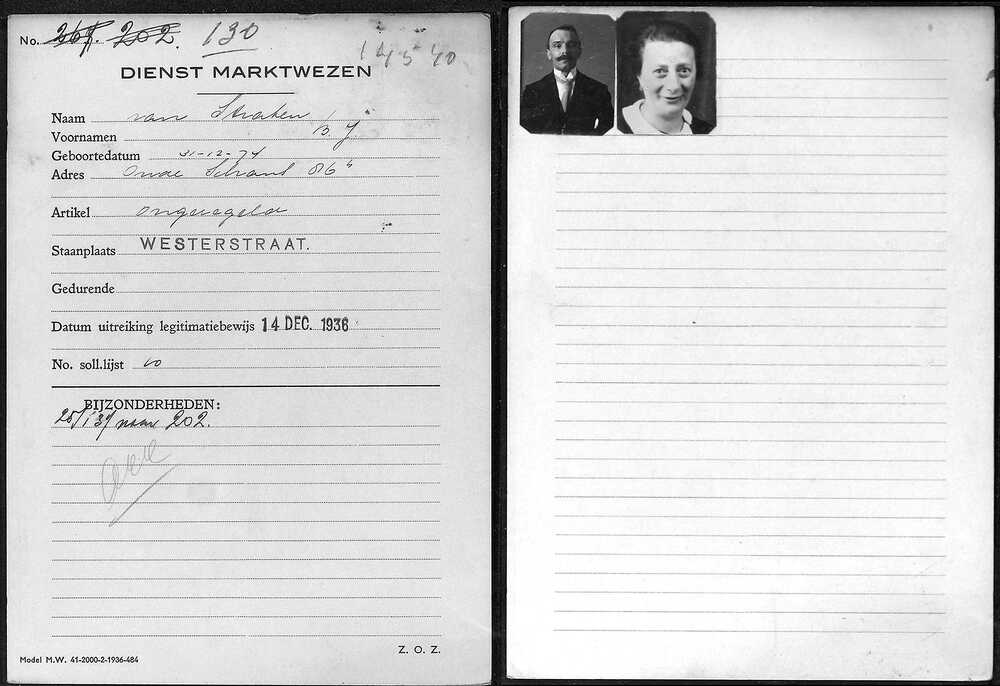 No. 367. 202. 130
14 5 40
DIENST MARKTWEZEN
Naam van Straten
Voornamen B J
Geboortedatum 31-12-74
Adres Oude Schans 86
Artikel ongeregeld
Staanplaats WESTERSTRAAT.
Gedurende
Datum uitreiking legitimatiebewijs 14 DEC. 1936
No. soll.lijst 10
BIJZONDERHEDEN:
25/1 37 naar 202.
Z. O. Z.
Model M.W. 41-2000-2-1936-484